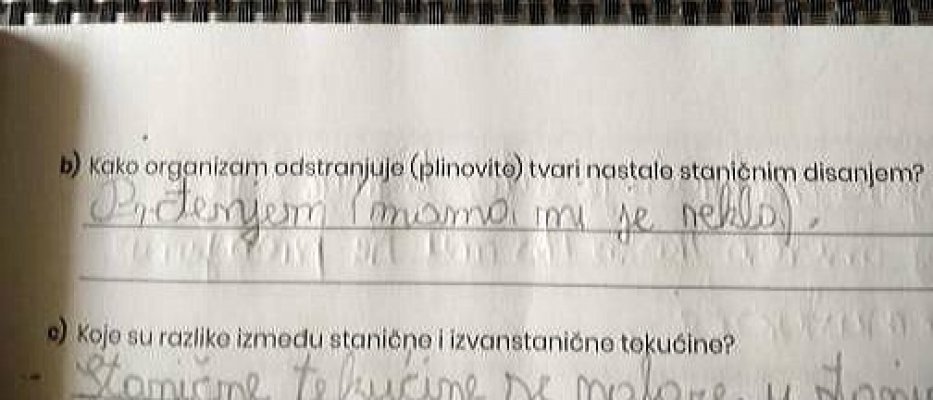 b) Kako organizam odstranjuje (plinovite) tvari nastale staničnim disanjem?
Prđenjem (mama mi je rekla).
c) Koje su razlike između stanične i izvanstanične tekućine?
Stanične tekućine se nalaze u